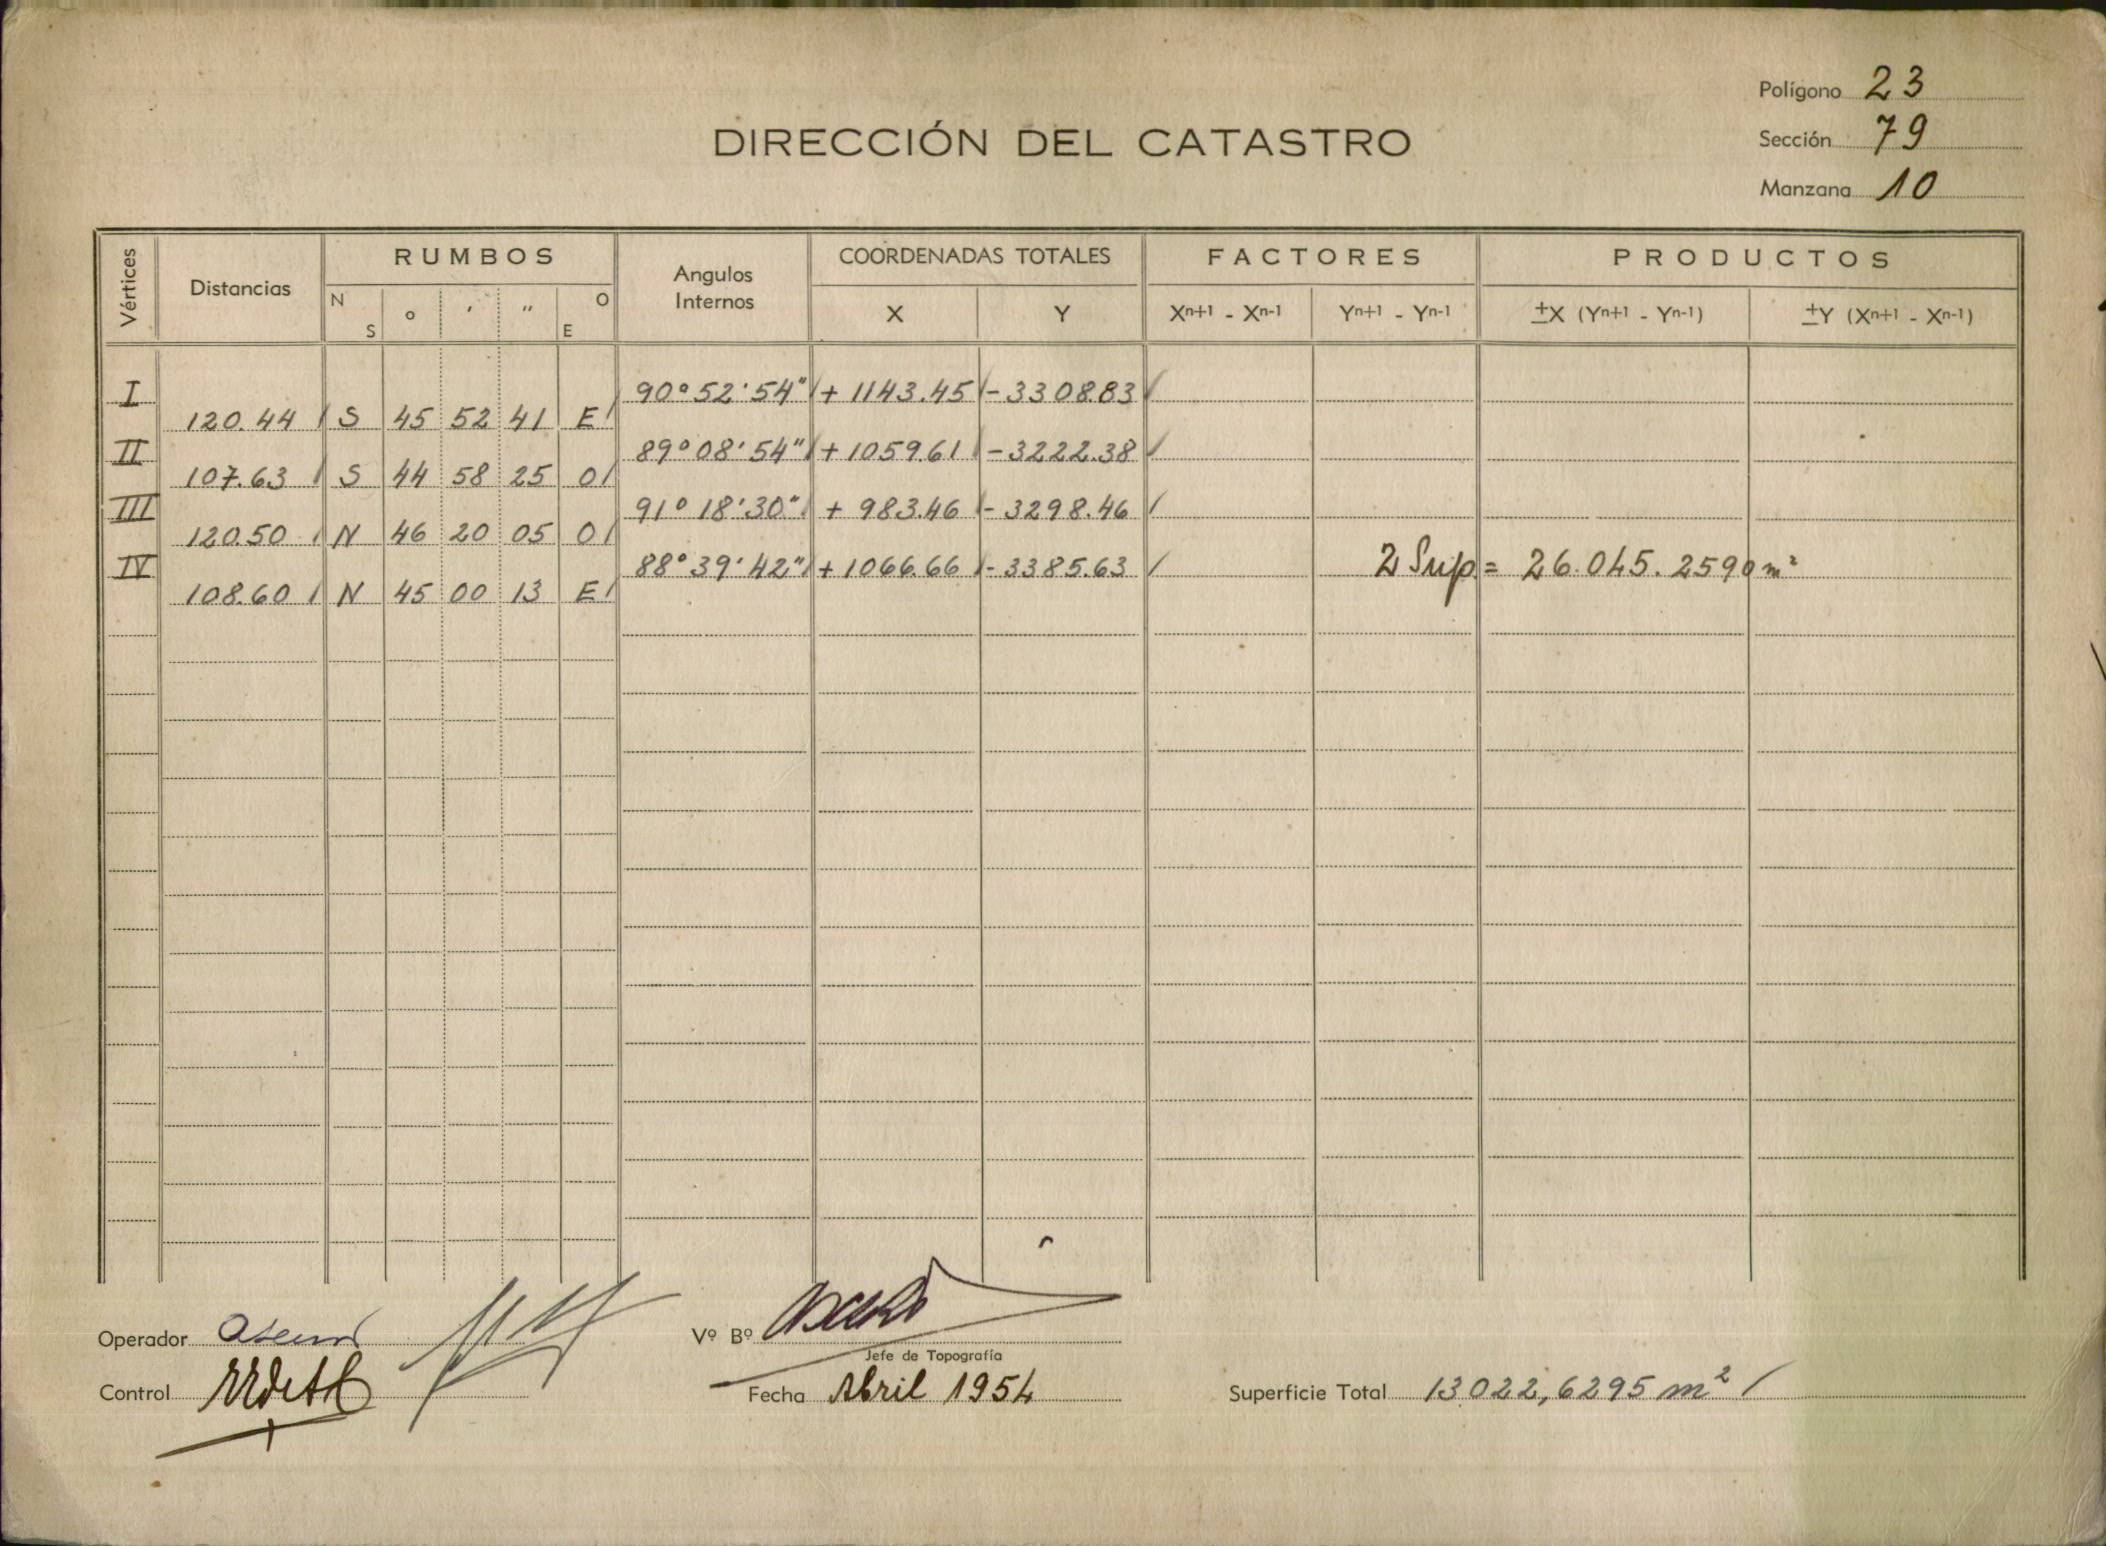 Polígono 23
DIRECCIÓN DEL CATASTRO
Sección 79
Manzana 10
Vértices Distancias RUMBOS Angulos Internos COORDENADAS TOTALES FACTORES PRODUCTOS
N S ° ′ ″ O E X Y Xⁿ⁺¹ - Xⁿ⁻¹ Yⁿ⁺¹ - Yⁿ⁻¹ ±X (Yⁿ⁺¹ - Yⁿ⁻¹) ±Y (Xⁿ⁺¹ - Xⁿ⁻¹)
I 90° 52' 54" + 1143.45 - 3308.83
120.44 S 45 52 41 E
II 89° 08' 54" + 1059.61 - 3222.38
107.63 S 44 58 25 O
III 91° 18' 30" + 983.46 - 3298.46
120.50 N 46 20 05 O
IV 88° 39' 42" + 1066.66 - 3385.63 2 Sup. = 26.045.2590 m²
108.60 N 45 00 13 E
Operador
Vº Bº
Jefe de Topografía
Control
Fecha Abril 1954
Superficie Total 13022,6295 m²